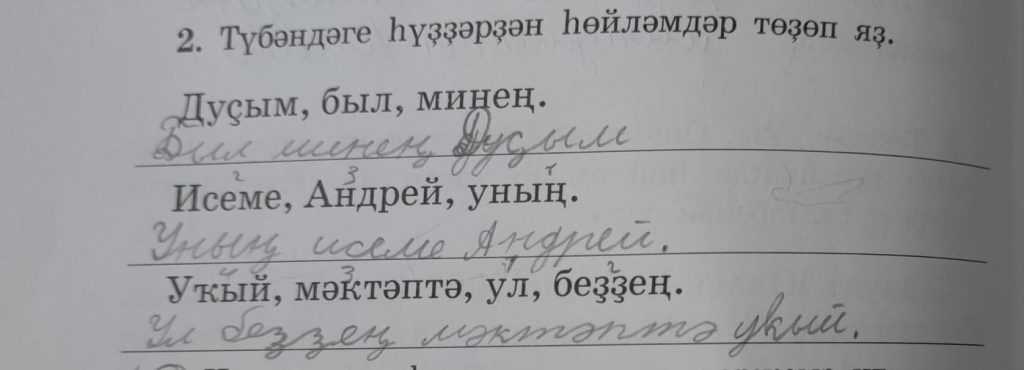 2. Түбәндәге һүҙҙәрҙән һөйләмдәр төҙөп яҙ.
Дуҫым, был, минең.
Бил минең Дуҫым
Исеме, Андрей, уның.
Уның исеме Андрей.
Уҡый, мәктәптә, ул, беҙҙең.
Ул беҙҙең мәктәптә уҡый.